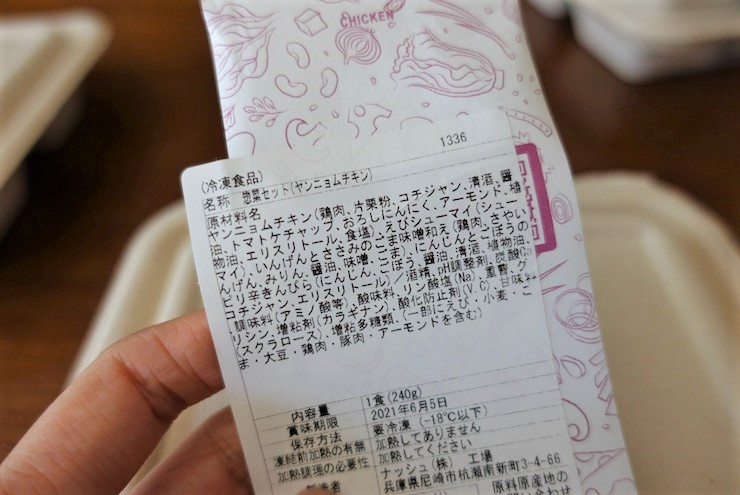 CHICKEN
1336
(冷凍食品)
名称 惣菜セット(ヤンニョムチキン)
原材料名
ヤンニョムチキン(鶏肉、片栗粉、コチジャン、清酒、醤
油、トマトケチャップ、おろしにんにく、アーモンド、植
物油、エリスリトール、食塩)、えびシューマイ(シュー
マイ)、いんげんとささみのごま味噌和え(鶏肉、さやい
んげん、みりん、醤油、味噌、ごま)、にんじんとごぼうの
ピリ辛きんぴら(にんじん、ごぼう、醤油、清酒、植物油、
コチジャン、エリスリトール)/酒精、pH調整剤、炭酸Ca、
調味料(アミノ酸等)、酸味料、リン酸塩(Na)、重曹、グ
リシン、増粘剤(カラギナン)、酸化防止剤(V.C)、甘味料
(スクラロース)、増粘多糖類、(一部にえび・小麦・ご
ま・大豆・鶏肉・豚肉・アーモンドを含む)
内容量 1食(240g)
賞味期限 2021年6月5日
保存方法 要冷凍(-18℃以下)
凍結前加熱の有無 加熱してありません
加熱調理の必要性 加熱してください
ナッシュ(株) 工場
兵庫県尼崎市杭瀬南新町3-4-66
原料原産地の